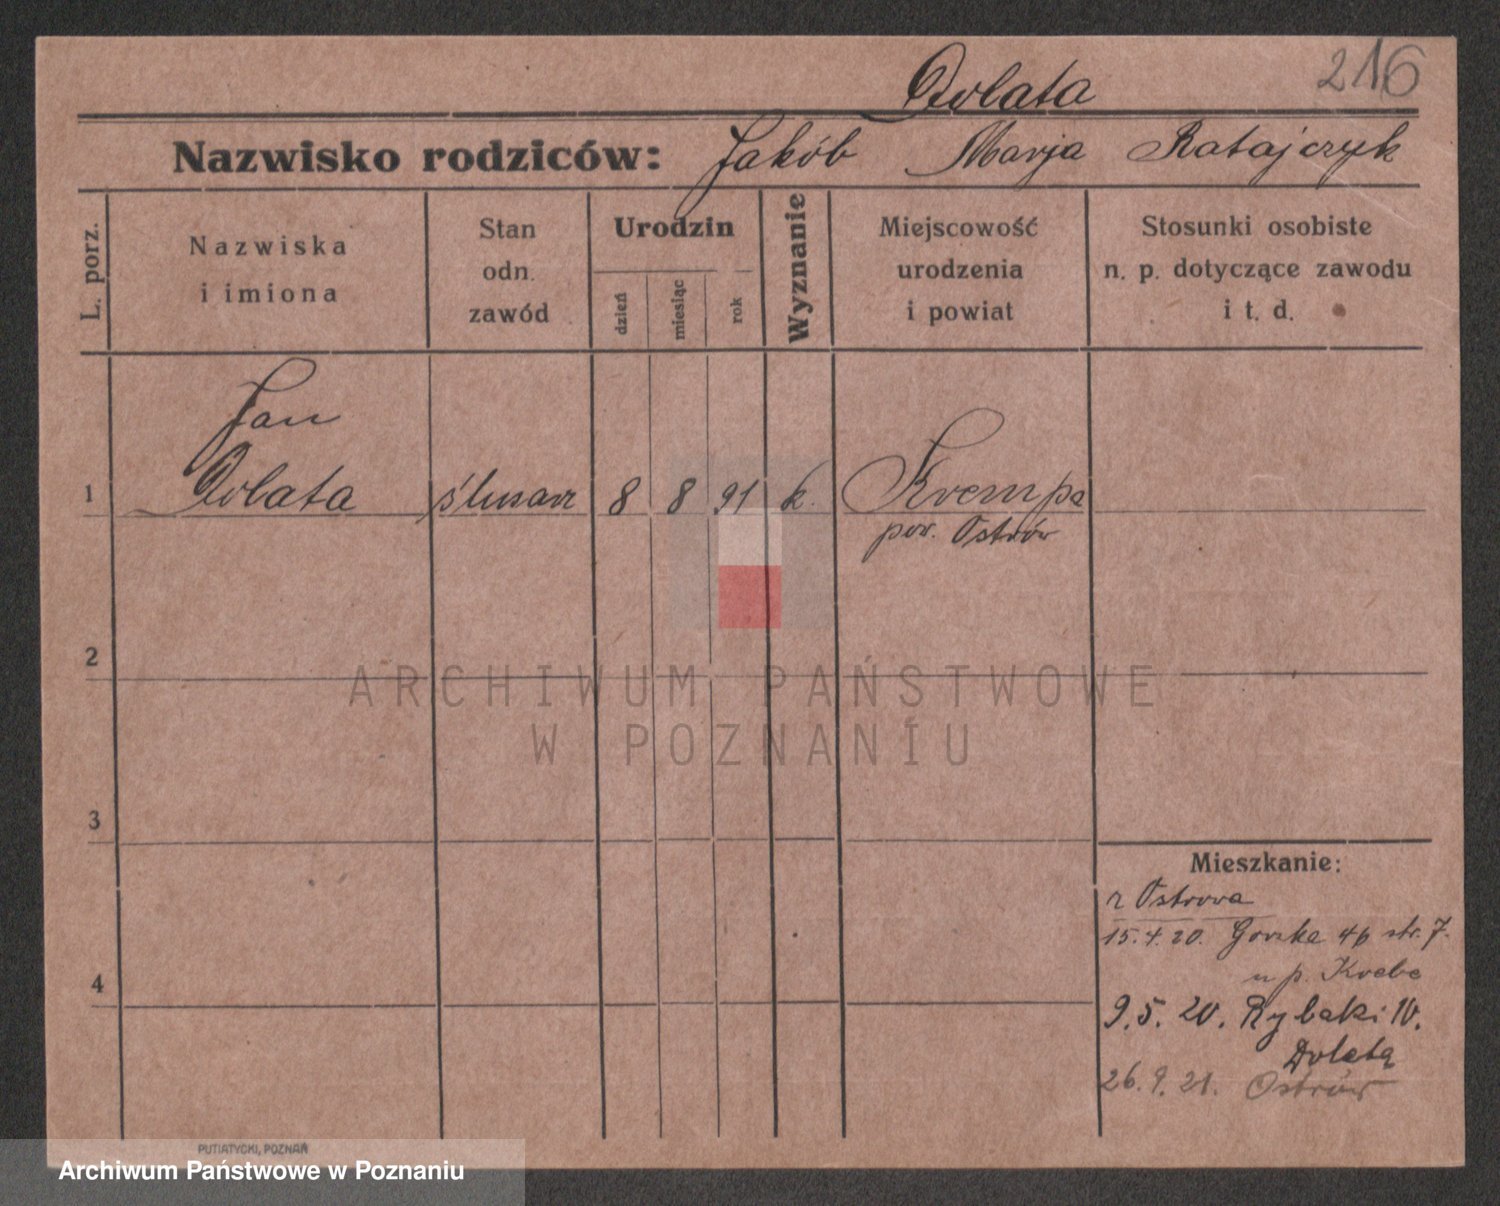 216
Dolata
Nazwisko rodziców: Jakób Marja Ratajczyk
L. porz.
Nazwiska
i imiona
Stan
odn.
zawód
Urodzin
dzień
miesiąc
rok
Wyznanie
Miejscowość
urodzenia
i powiat
Stosunki osobiste
n. p. dotyczące zawodu
i t. d.
Jan
1 Dolata ślusarz 8 8 91 k. Krempa
pow. Ostrów
2
3
4
Mieszkanie:
z Ostrowa
15.4.20. Gorzka 4b str. 7.
u p. Krebe
9.5.20. Rybaki 10.
Dolatą
26.9.21. Ostrów
PUTIATYCKI, POZNAŃ
ARCHIWUM PAŃSTWOWE
W POZNANIU
Archiwum Państwowe w Poznaniu